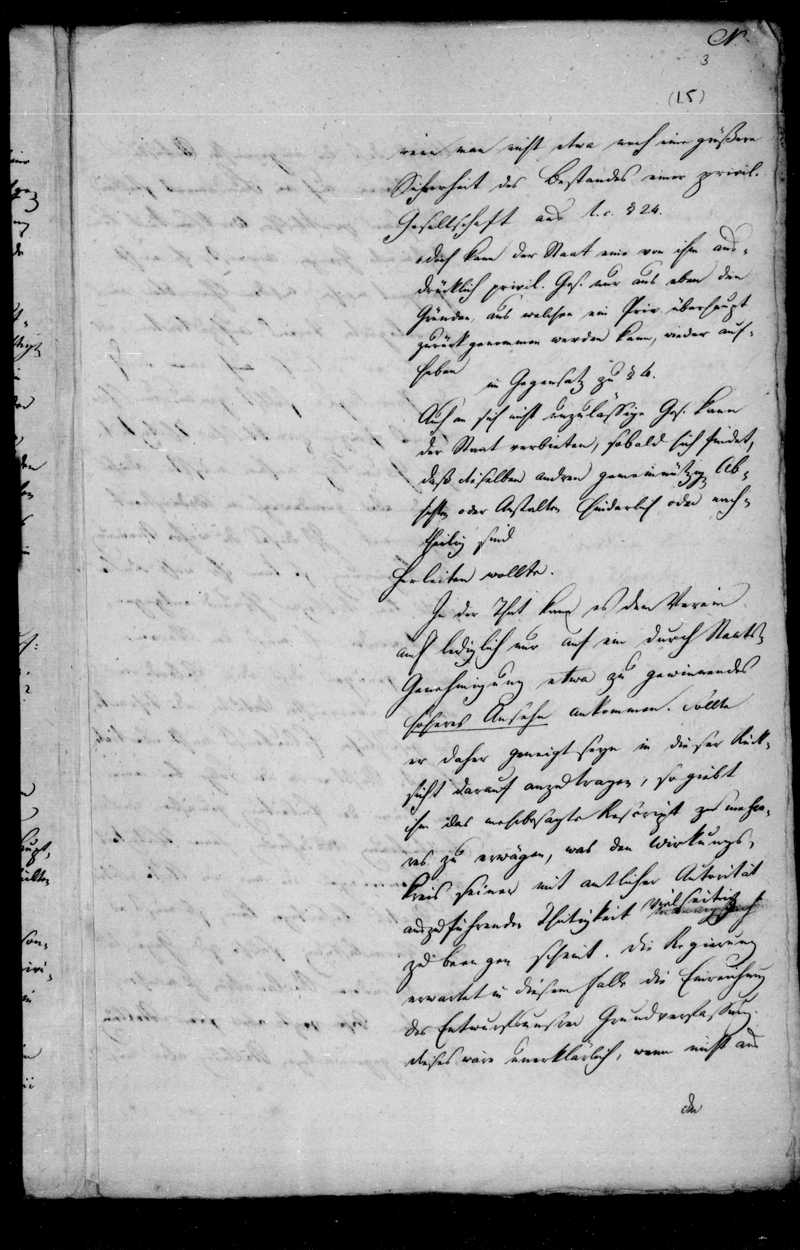 N.
3
(15)
wenn man nicht etwa noch eine größere
Sicherheit des Bestandes einer privil.
Gesellschaft aus l. c. § 24.
doch kann der Staat eine von ihm aus-
drücklich privil. Ges. nur aus eben den
Gründen, aus welchen ein Priv. überhaupt
zurückgenommen werden kann, wieder auf-
heben
im Gegensatz zu § 4.
Auch an sich nicht unzulässige Ges. kann
der Staat verbieten, sobald sich findet,
daß dieselben andren gemeinnützigen Ab-
sichten oder Anstalten hinderlich oder nach-
theilig sind
herleiten wollte.
In der That kann es dem Verein
auch lediglich nur auf ein durch Staats-
Genehmigung etwa zu gewinnendes
höheres Ansehn ankommen. Sollte
er daher geneigt seyn in dieser Rück-
sicht darauf anzutragen, so giebt
ihm das mehrbesagte Rescript zu mehre-
res zu erwägen, was den Wirkungs-
kreis seiner mit amtlicher Autorität
auszuführenden Thätigkeit vielseitig
zu beengen scheint. Die Regierung
erwartet in diesem Falle die Einreichung
des Entwurfs unsrer Grundverfassung.
Dieses wäre unerklärlich, wenn nicht aus
den